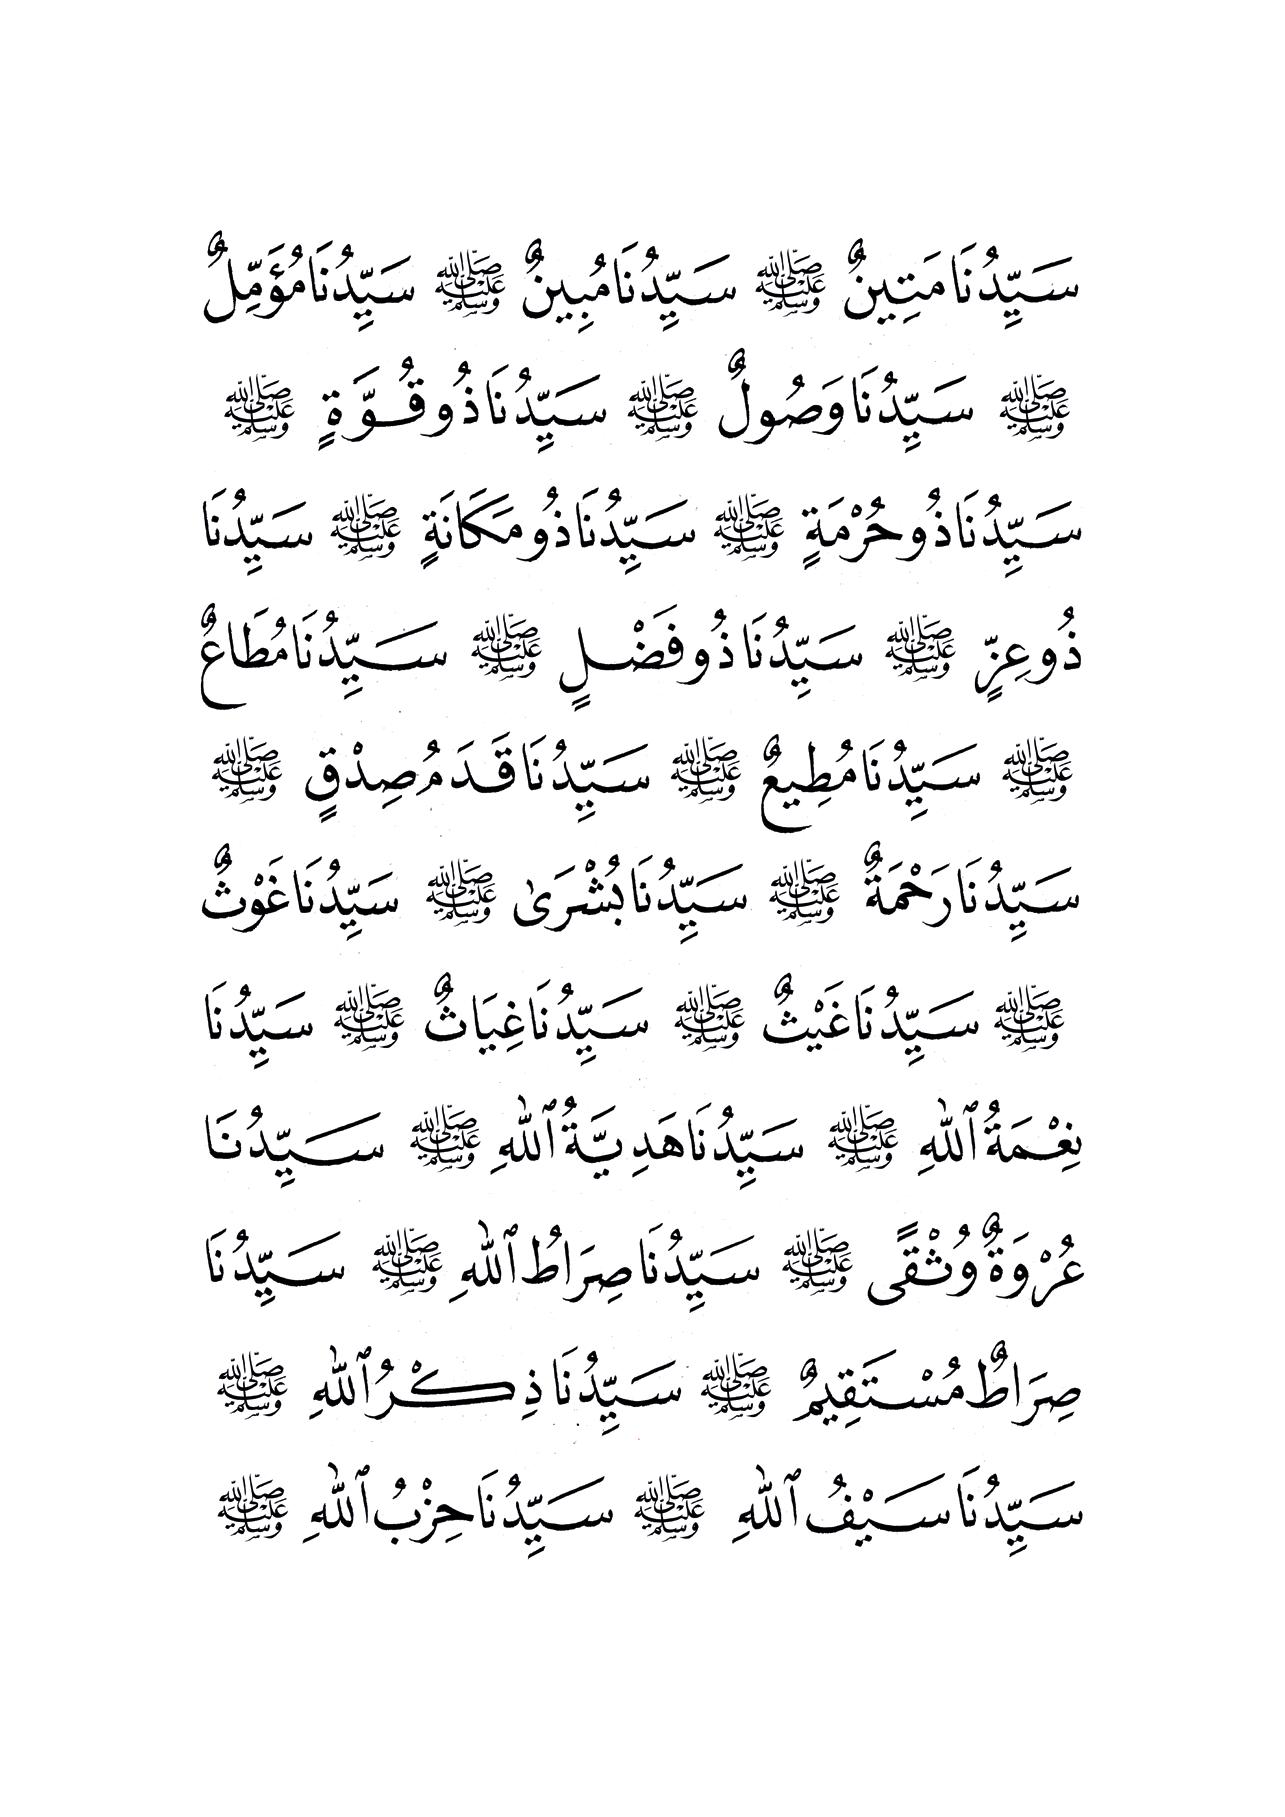 سَيِّدُنَا مَتِينٌ ﷺ سَيِّدُنَا مُبِينٌ ﷺ سَيِّدُنَا مُؤَمِّلٌ
ﷺ سَيِّدُنَا وَصُولٌ ﷺ سَيِّدُنَا ذُو قُوَّةٍ ﷺ
سَيِّدُنَا ذُو حُرْمَةٍ ﷺ سَيِّدُنَا ذُو مَكَانَةٍ ﷺ سَيِّدُنَا
ذُو عِزٍّ ﷺ سَيِّدُنَا ذُو فَضْلٍ ﷺ سَيِّدُنَا مُطَاعٌ
ﷺ سَيِّدُنَا مُطِيعٌ ﷺ سَيِّدُنَا قَدَمُ صِدْقٍ ﷺ
سَيِّدُنَا رَحْمَةٌ ﷺ سَيِّدُنَا بُشْرَىٰ ﷺ سَيِّدُنَا غَوْثٌ
ﷺ سَيِّدُنَا غَيْثٌ ﷺ سَيِّدُنَا غِيَاثٌ ﷺ سَيِّدُنَا
نِعْمَةُ ٱللَّهِ ﷺ سَيِّدُنَا هَدِيَّةُ ٱللَّهِ ﷺ سَيِّدُنَا
عُرْوَةٌ وُثْقًى ﷺ سَيِّدُنَا صِرَاطُ ٱللَّهِ ﷺ سَيِّدُنَا
صِرَاطٌ مُسْتَقِيمٌ ﷺ سَيِّدُنَا ذِكْرُ ٱللَّهِ ﷺ
سَيِّدُنَا سَيْفُ ٱللَّهِ ﷺ سَيِّدُنَا حِزْبُ ٱللَّهِ ﷺ